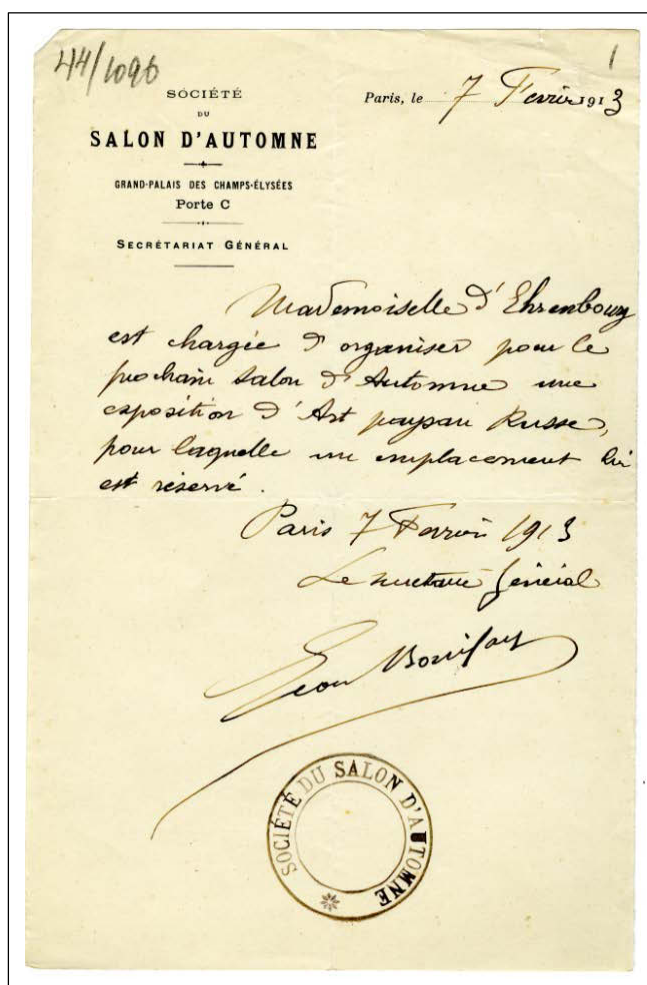 44/1096
1
SOCIÉTÉ
DU
SALON D'AUTOMNE
GRAND-PALAIS DES CHAMPS-ÉLYSÉES
Porte C
SECRÉTARIAT GÉNÉRAL
Paris, le 7 Fevrier 1913
Mademoiselle d'Ehrenbourg
est chargée d'organiser pour le
prochain Salon d'Automne une
exposition d'Art paysan Russe,
pour laquelle un emplacement lui
est réservé.
Paris 7 Fevrier 1913
Le secretaire Général
SOCIÉTÉ DU SALON D'AUTOMNE